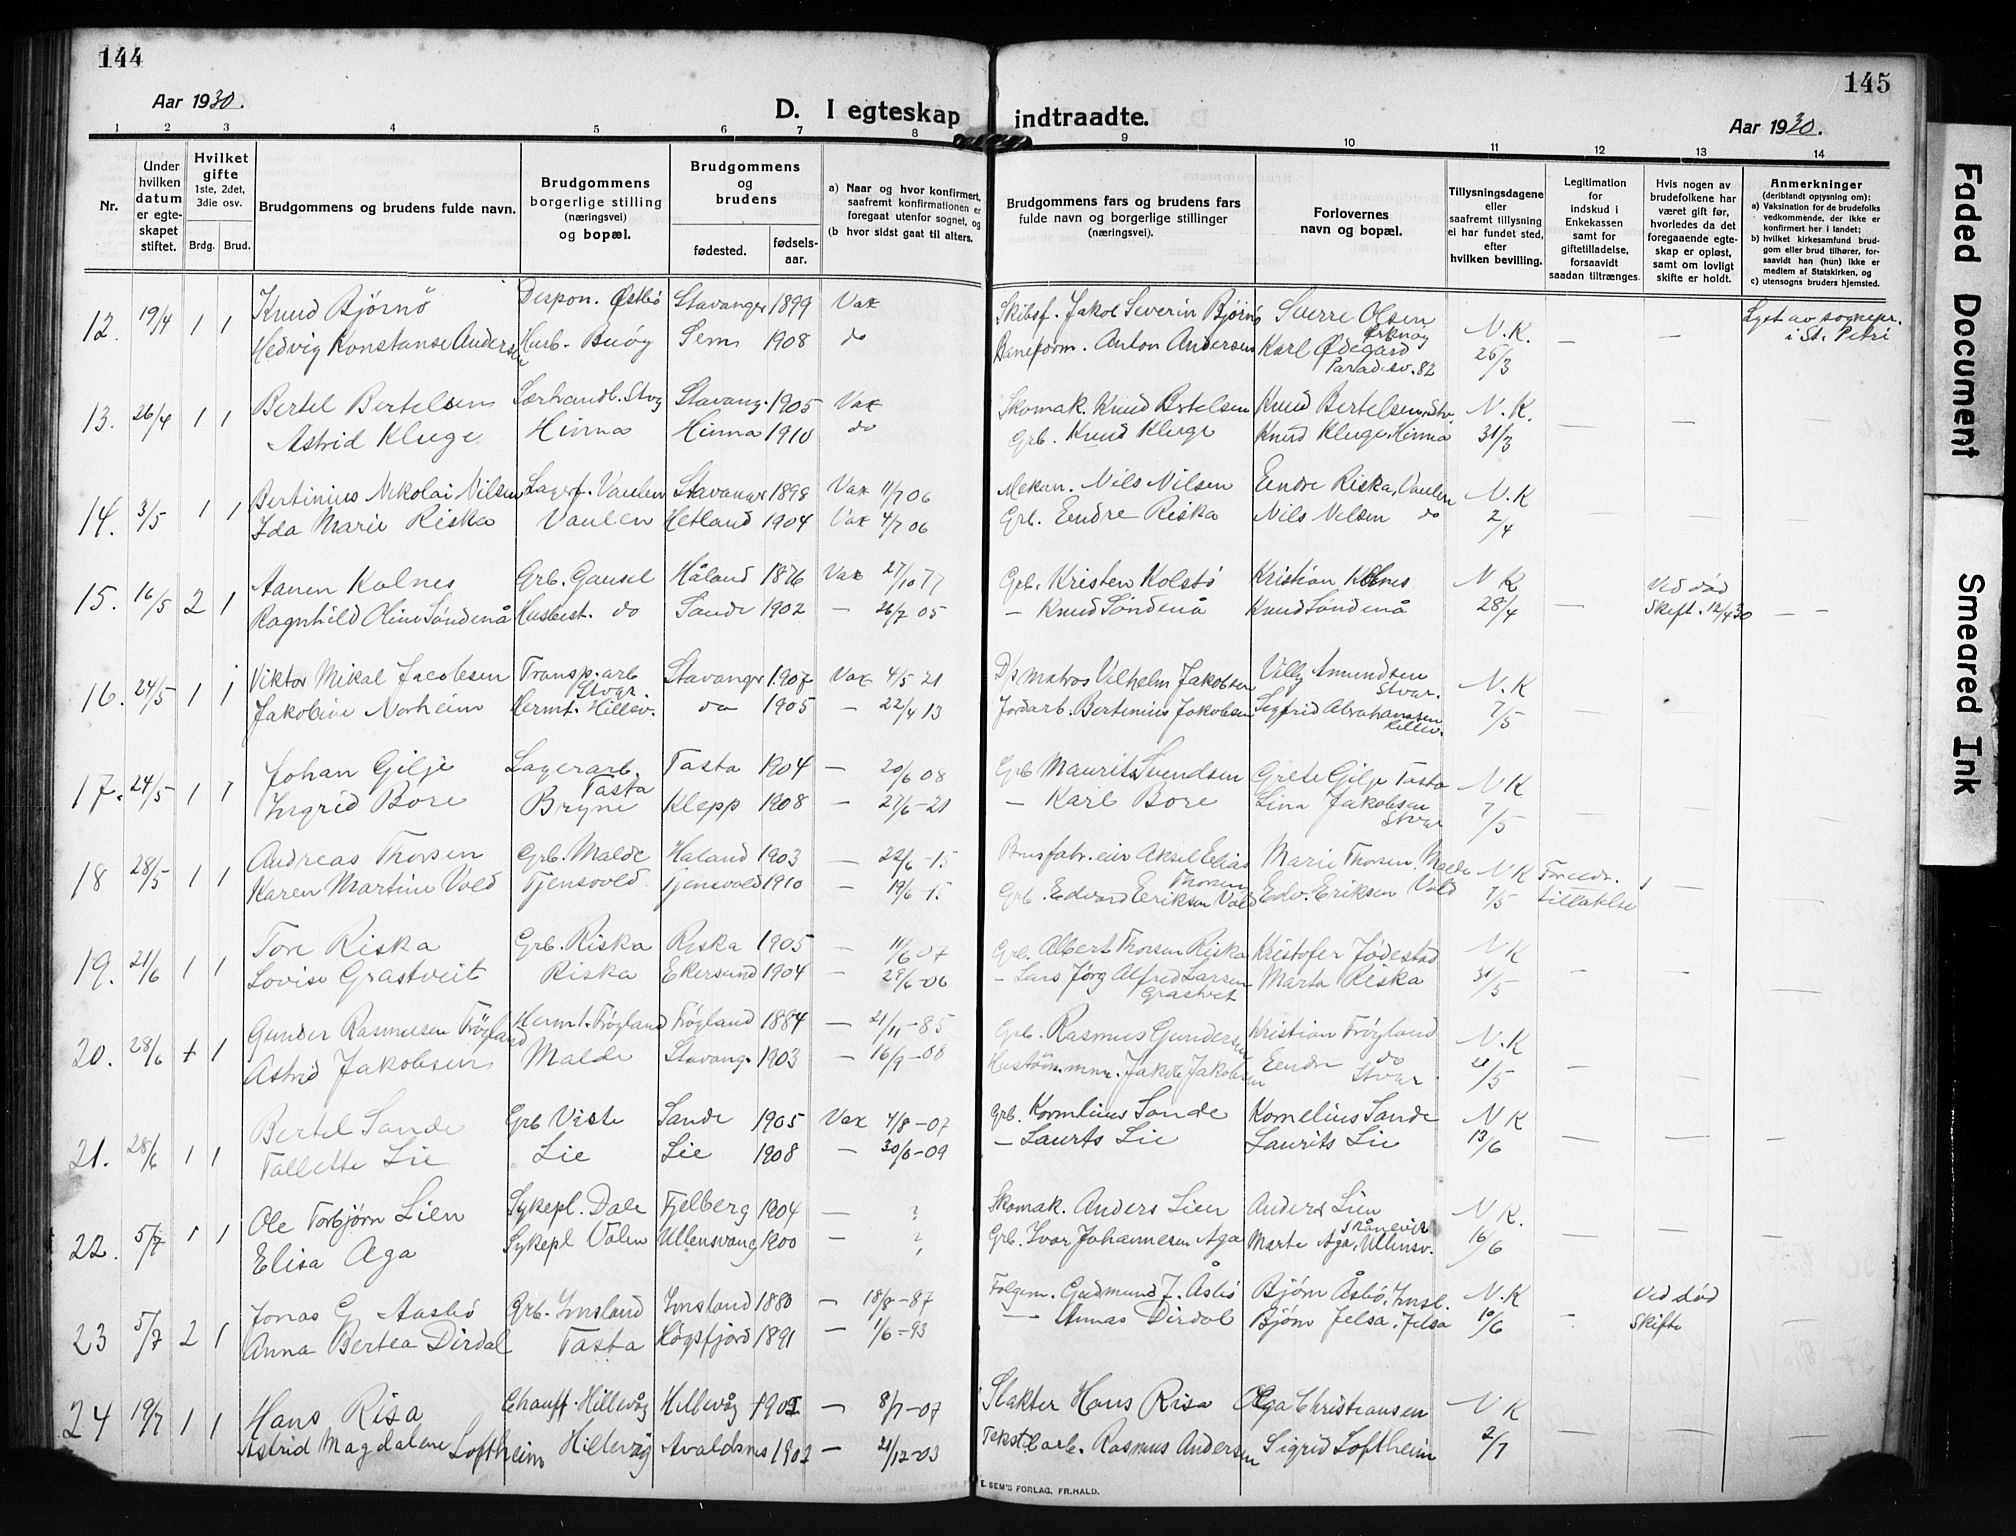 144
145
Aar 1930.
D. I egteskap indtraadte.
Aar 1930.
1 2 3 4 5 6 7 8 9 10 11 12 13 14
Nr.
Under hvilken datum er egteskapet stiftet.
Hvilket gifte 1ste, 2det, 3die osv.
Brdg. Brud.
Brudgommens og brudens fulde navn.
Brudgommens borgerlige stilling (næringsvei) og bopæl.
Brudgommens og brudens
fødested. fødselsaar.
a) Naar og hvor konfirmert, saafremt konfirmationen er foregaat utenfor sognet, og
(b hvor sidst gaat til alters.
Brudgommens fars og brudens fars fulde navn og borgerlige stillinger (næringsvei).
Forlovernes navn og bopæl.
Tillysningsdagene eller saafremt tillysning ei har fundet sted, efter hvilken bevilling.
Legitimation for indskud i Enkekassen samt for giftetilladelse, forsaavidt saadan tiltrænges.
Hvis nogen av brudefolkene har været gift før, hvorledes da det foregaaende egteskap er opløst, samt om lovligt skifte er holdt.
Anmerkninger (deriblandt opysning om):
a) Vaksination for de brudefolks vedkommende, der ikke er konfirmert her i landet;
b) hvilket kirkesamfund brudgom eller brud tilhører, forsaavidt han (hun) ikke er medlem af Statskirken, og
c) utensogns bruders hjemsted.
12. 19/4 1 1 Knud Bjørnö Dispon. Østbö Stavanger 1899 Vax Skibsf. Jakob Severin Bjørnö Sverre Olsen N.K. 26/3 — — Lyst av sognepr. i St. Petri
Hedvig Konstanse Andersen Husb. Buöy Sem 1908 do Baneform. Anton Andersen Karl Ødegård Paradisv. 82
13. 26/4 1 1 Bertel Bertelsen Stvg Stavang. 1905 Vax Skomak. Knud Bertelsen Knud Bertelsen, Stv. N.K. 31/3
Astrid Kluge Hinna Hinna 1910 do Grb. Knud Kluge Knud Kluge, Hinna
14. 3/5 1 1 Bertinius Nikolai Nilsen Lagerf. Vaulen Stavanger 1898 Vax 11/7 06 Mekan. Nils Nilsen Eendre Riska, Vaulen N.K 2/4
Ida Marie Riska Vaulen Hetland 1904 Vax 4/7 06 Grb. Eendre Riska Nils Nilsen do
15. 16/5 2 1 Aanen Kolnes Grb. Gausel Håland 1876 Vax 27/10 77 Grb. Kristen Kolstö Kristian Kolnes N K 28/4 — Ved död Skift. 12/4 30 — —
Ragnhild Oline Söndenå Husbest. do Sande 1902 — 26/7 05 — Knud Söndenå Knud Söndenå
16. 24/5 1 1 Viktor Mikal Jacobsen Transp. arb Stvgr. Stavanger 1907 Vax 4/5 21 D/s matros Vilhelm Jakobsen Villy Amundsen Stvgr. N.K 7/5
Jakobine Norheim Hermt. Hillev. do 1905 — 22/4 13 Jordarb. Bertinius Jakobsen Sigfrid Abrahamsen Hillev.
17. 24/5 1 1 Johan Gilje Lagerarb. Tasta Tasta 1904 — 20/6 08 Grb Maurits Svendsen Grete Gilje Tasta N K 7/5
Ingrid Bore Bryne Klepp 1908 — 27/6-21 — Karl Bore Lina Jakobsen Stvgr
18 28/5 1 1 Andreas Thorsen Grb. Malde Haland 1903 — 22/6-15 Brusfabr. eier Aksel Elias Thorsen Marie Thorsen, Malde N K 7/5 tillatelse
Karen Martine Vold Tjensvold Tjensvold 1910 — 19/6-15 Grb. Edvard Eriksen Vold Edv. Eriksen Vold
19. 21/6 1 1 Tore Riska Grb. Riska Riska 1905 — 11/6 07 Grb. Albert Thorsen Riska Kristofer Jødestad N K 31/5
Lovise Grastveit Riska Ekersund 1904 — 29/6-06 — Lars Jörg Alfred Larsen Grastveit Marta Riska
20. 28/6 1 1 Gunder Rasmusen Fröyland Hermt. Fröyland Fröyland 1884 — 21/11-85 Grb. Rasmus Gundersen Kristian Fröyland N.K 21/5
Astrid Jakobsen Malde Stavang. 1903 — 16/9-08 Jakob Jakobsen Eendre do Stvgr
21. 28/6 1 1 Bertel Sande Grb Viste Sande 1905 Vax 4/8-07 Grb. Kornelius Sande Kornelius Sande N K 13/6
Tallette Lie Lie Lie 1908 — 30/6-09 — Laurits Lie Laurits Lie
22. 5/7 1 1 Ole Torbjørn Lien Sykepl. Dale Fjelberg 1904 — ? Skomak. Anders Lien Anders Lien Skånevik N K. 16/6
Elisa Aga Sykepl Valen Ullensvang 1900 — ? Grb. Ivar Johannesen Aga Marta Aga, Ullensv.
23 5/7 2 1 Jonas G. Aasbö Grb. Imsland Imsland 1880 — 18/8-87 Folgem. Gudmund J. Åsbö Bjørn Åsbö, Imsl. N.K 10/6 - Ved död Skifte
Anna Bertea Dirdal Tasta Högsfjord 1891 — 1/6-93 — Annas Dirdal Bjørn Jelsa, Jelsa
24 19/7 1 1 Hans Risa Chauff. Hillevåg Hillevåg — 8/7-07 Slakter Hans Risa Olga Christiansen N K 2/7
Astrid Magdalene Loftheim Hillevåg Avaldsnes 1902 — 21/12-03 Tekstilarb. Rasmus Andersen Sigrid Loftheim
E. SEM'S FORLAG, FR.HALD.
Faded Document
Smeared Ink